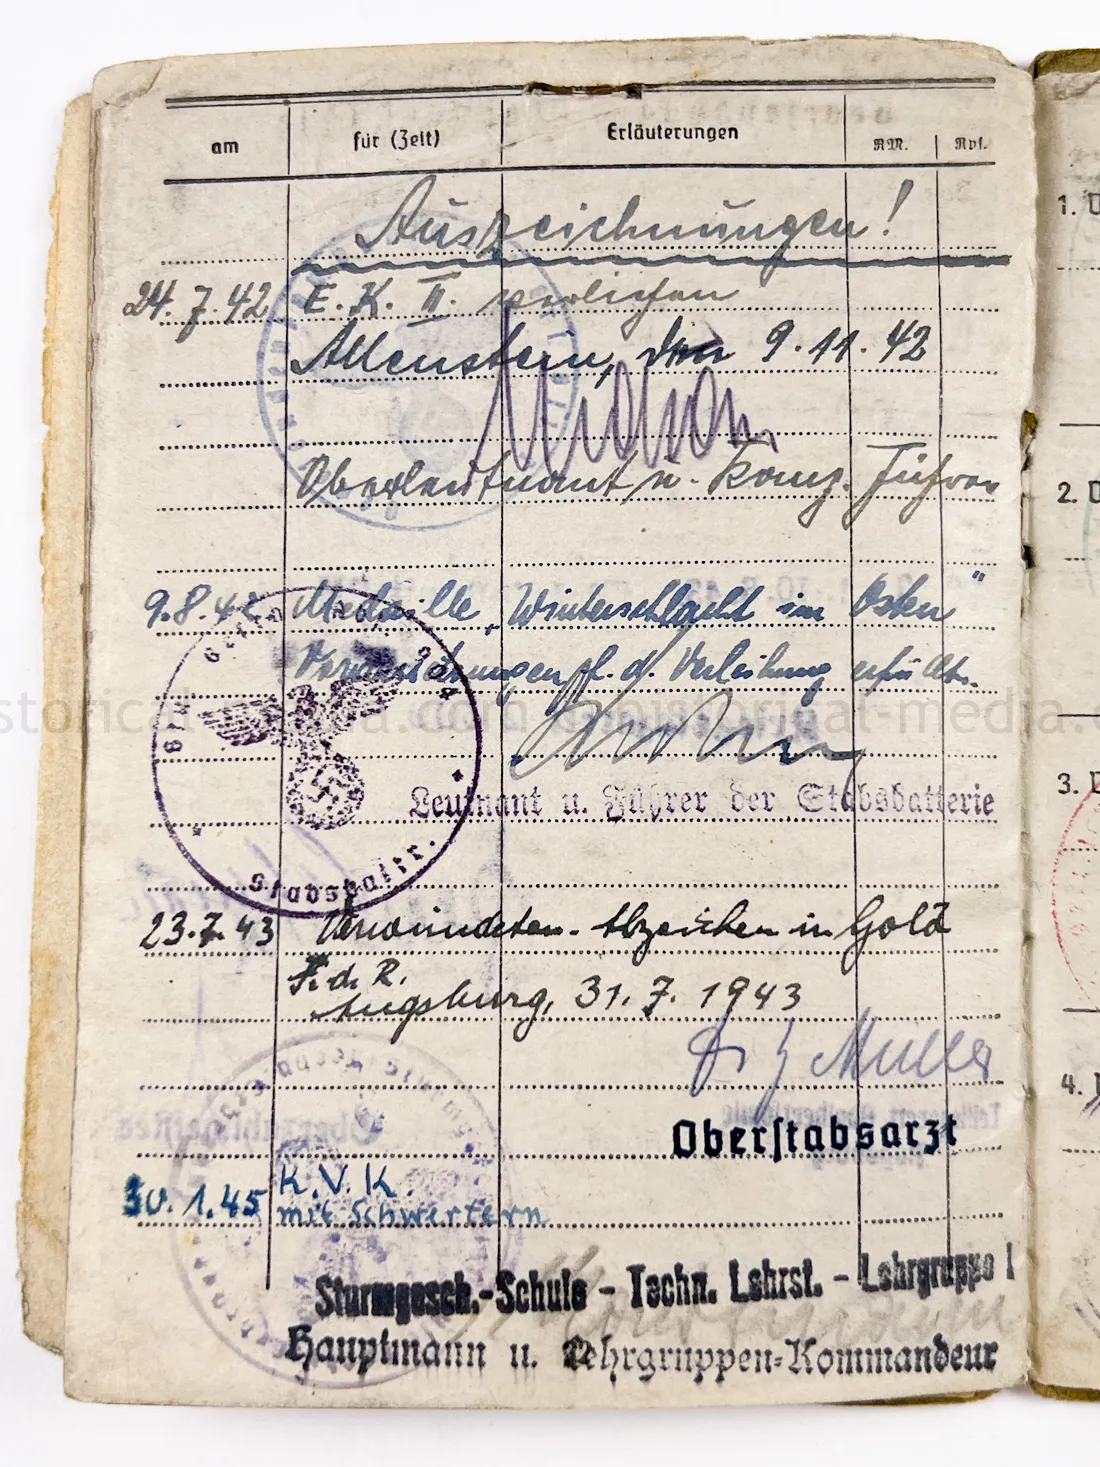 am für (Zeit) Erläuterungen RM. Rpf.
Auszeichnungen!
24.7.42 E.K. II. verliehen
Allenstein, den 9.11.42
Oberleutnant u. Komp. Führer
9.8.42. Medaille „Winterschlacht im Osten"
Voraussetzungen f. d. Verleihung erfüllt.
Leutnant u. Führer der Stabsbatterie
Stabsbattr.
23.7.43 Verwundeten-Abzeichen in Gold
F.d.R.
Augsburg, 31.7.1943
Müller
Oberstabsarzt
30.1.45 K.V.K.
mit Schwertern
Sturmgesch.-Schule - Techn. Lehrst. - Lehrgruppe I
Hauptmann u. Lehrgruppen-Kommandeur
1. D
2. D
3. D
4.